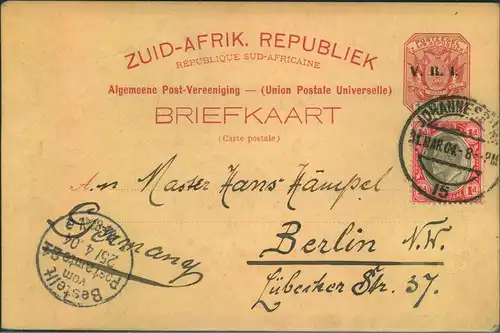 ZUID-AFRIK. REPUBLIEK
RÉPUBLIQUE SUD-AFRICAINE
Algemeene Post-Vereeniging — (Union Postale Universelle)
BRIEFKAART
(Carte postale)
V. R. I.
JOHANNESBU
31 MAR 04 8 - PM
15
1d
An Master Hans Hämpel
Germany
Berlin N.W.
Lübecker Str. 37.
Bestellt
vom
Postamte
25/4 04